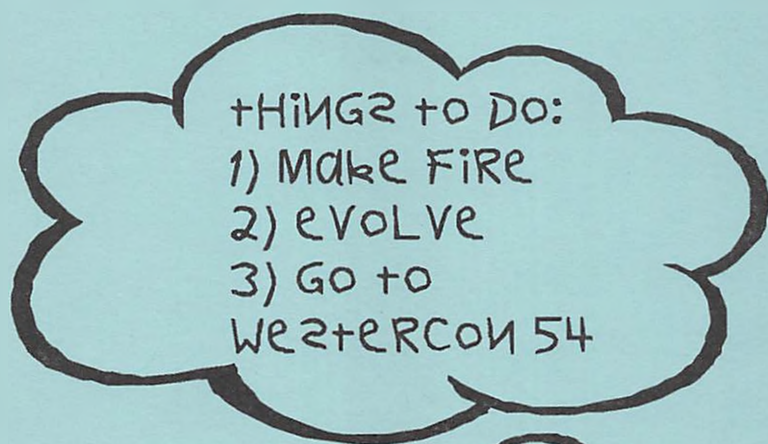 tHiNGS to DO:
1) Make FiRe
2) eVoLVe
3) Go to
WeSteRCoN 54